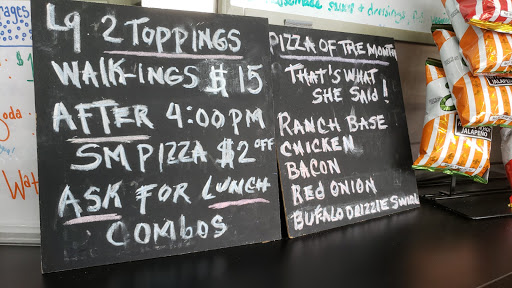 Lg 2 TOPPINGS
WALK-INGS $15
AFTER 4:00 PM
SM PIZZA $2 OFF
ASK FOR LUNCH
COMBOS
PIZZA OF THE MONTH
THAT'S WHAT
SHE SAID!
RANCH BASE
CHICKEN
BACON
RED ONION
BUFALO DRIZZLE SWIRL
rages
oda
Wat
sauce & dressings
JALAPEÑO
JALAPEÑO